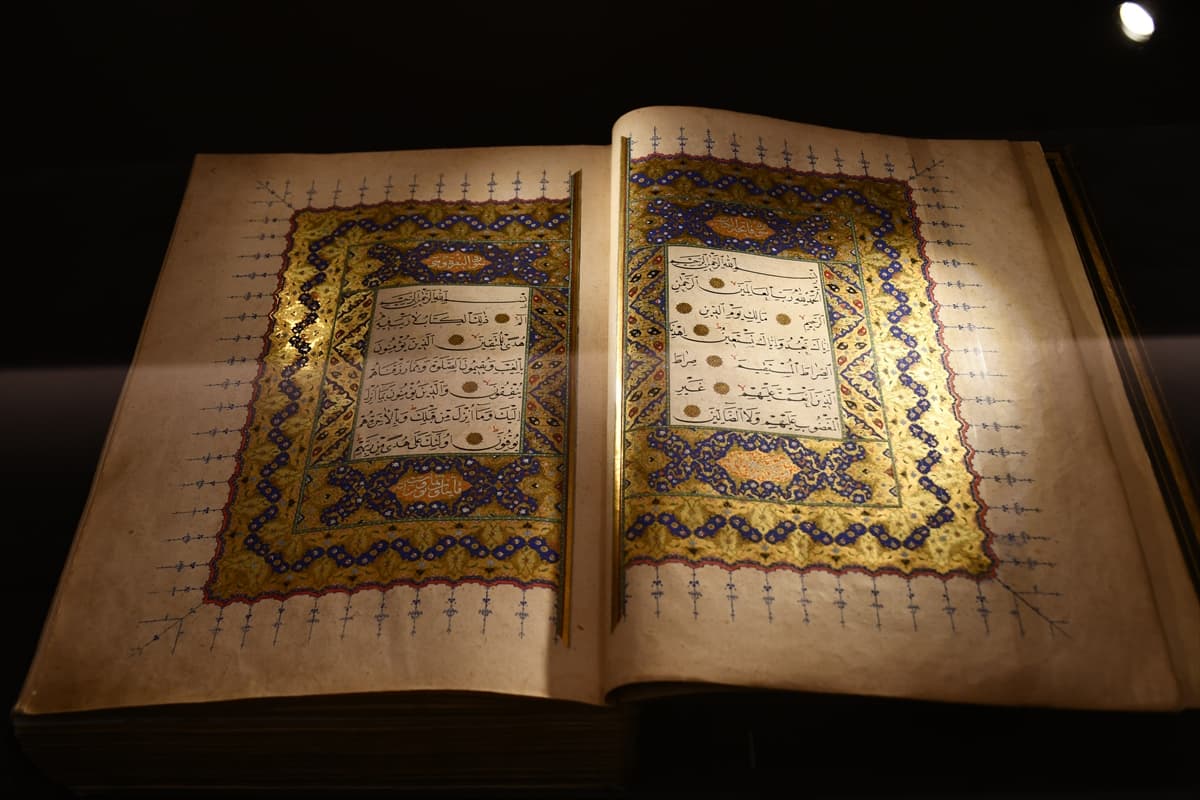 بسم الله الرحمن الرحيم
الحمد لله رب العالمين الرحمن
الرحيم مالك يوم الدين
اياك نعبد واياك نستعين اهدنا
الصراط المستقيم صراط
الذين انعمت عليهم غير
المغضوب عليهم ولا الضالين
سورة البقرة
بسم الله الرحمن الرحيم
الم ذلك الكتاب لا ريب فيه
هدى للمتقين الذين يؤمنون
بالغيب ويقيمون الصلوة ومما رزقناهم
ينفقون والذين يؤمنون بما انزل
اليك وما انزل من قبلك وبالاخرة هم
يوقنون اولئك على هدى من ربهم